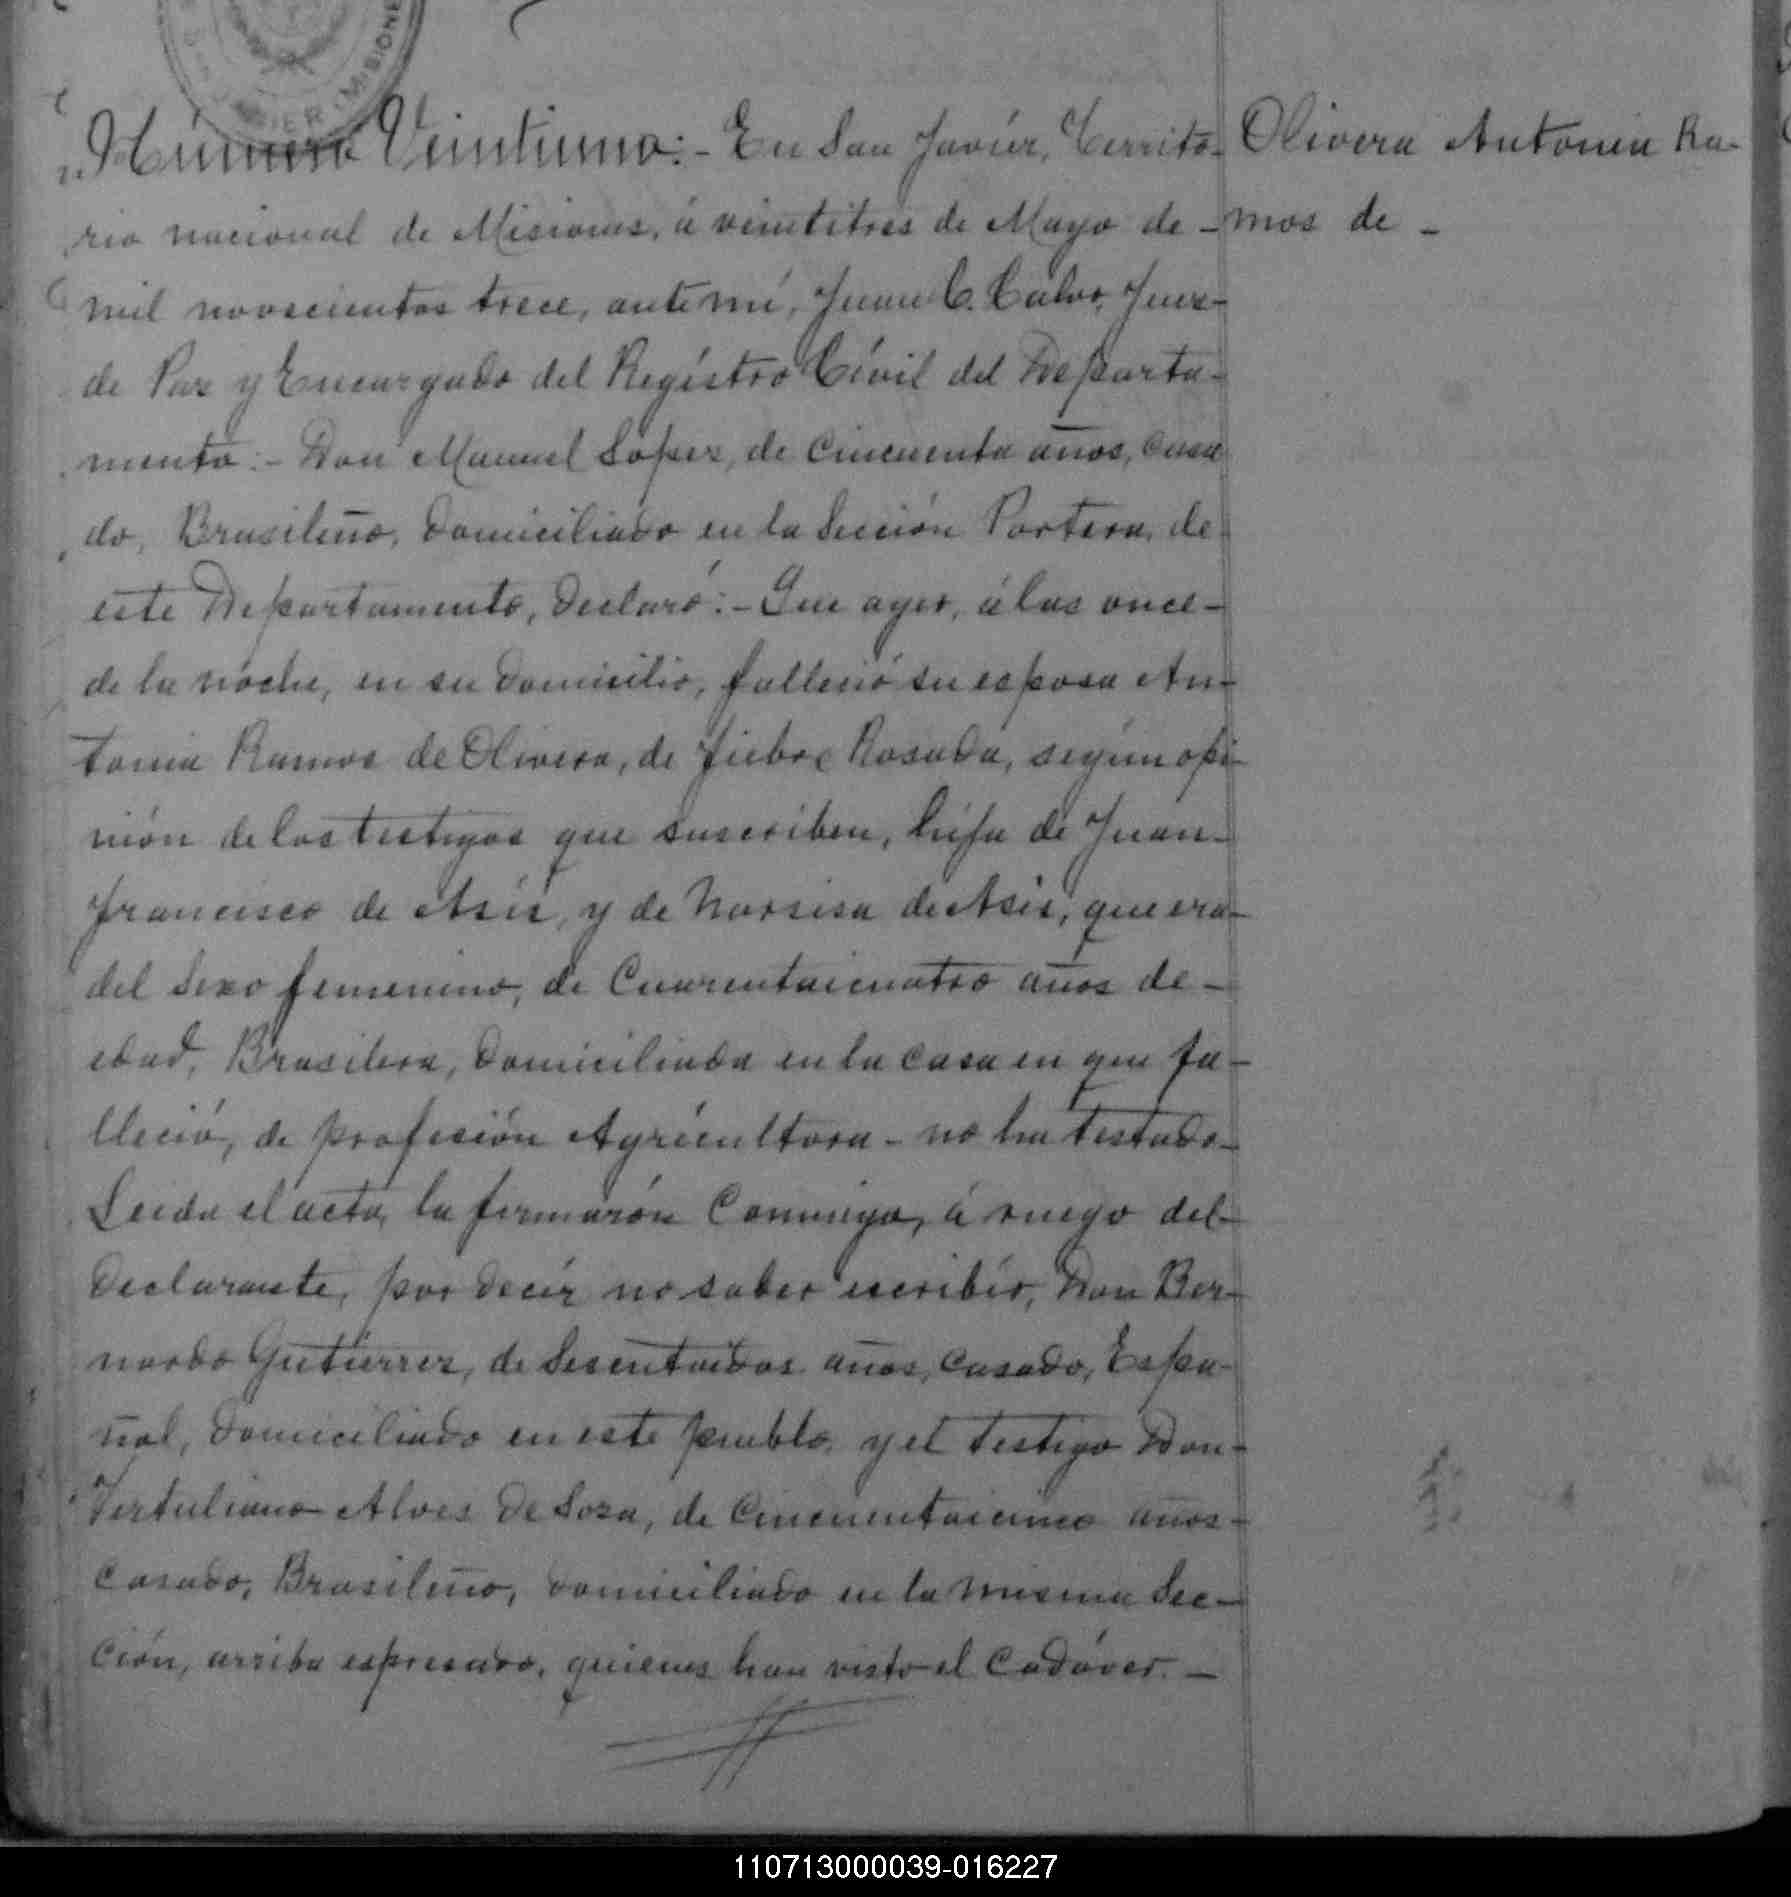 Número Veintiuno:- En San Javiér, Territo-
rio nacional de Misiones, á veintitres de Mayo de -
mil novecientos trece, ante mí, Juan C. Calvo, Juez-
de Paz y Encargado del Regístro Cívil del Departa-
mento:- Don Manuel Lopez, de Cincuenta años, Casa
do, Brasileño, Domiciliado en la Sección Portera, de
este Departamento, Declaró:- Que ayer, á las once-
de la nóche, en su Domicilio, falleció su esposa An-
tonia Ramos de Olivera, de fiebre Rosada, según opi-
nión de los testigos que suscriben, hija de Juan-
Francisco de Asís, y de Narsisa de Asis, que era-
del Sexo femenino, de Cuarentaicuatro años de -
edad, Brasilera, Domiciliada en la Casa en que fa-
lleció, de profesión Agricultora - no ha testado-
Leida el acta, la firmarón Conmigo, á ruego del-
Declarante, por Decír no saber escribír, Don Ber-
nardo Gutierrez, de Sesentaidos años, Casado, Espa-
ñol, Domiciliado en este pueblo, y el testigo Don-
Tertuliano Alves De Soza, de Cincuentaicinco años-
Casado, Brasileño, Domiciliado en la misma Sec-
ción, arriba espresado, quienes han visto el Cadáver. -
Olivera Antonia Ra-
mos de -
110713000039-016227